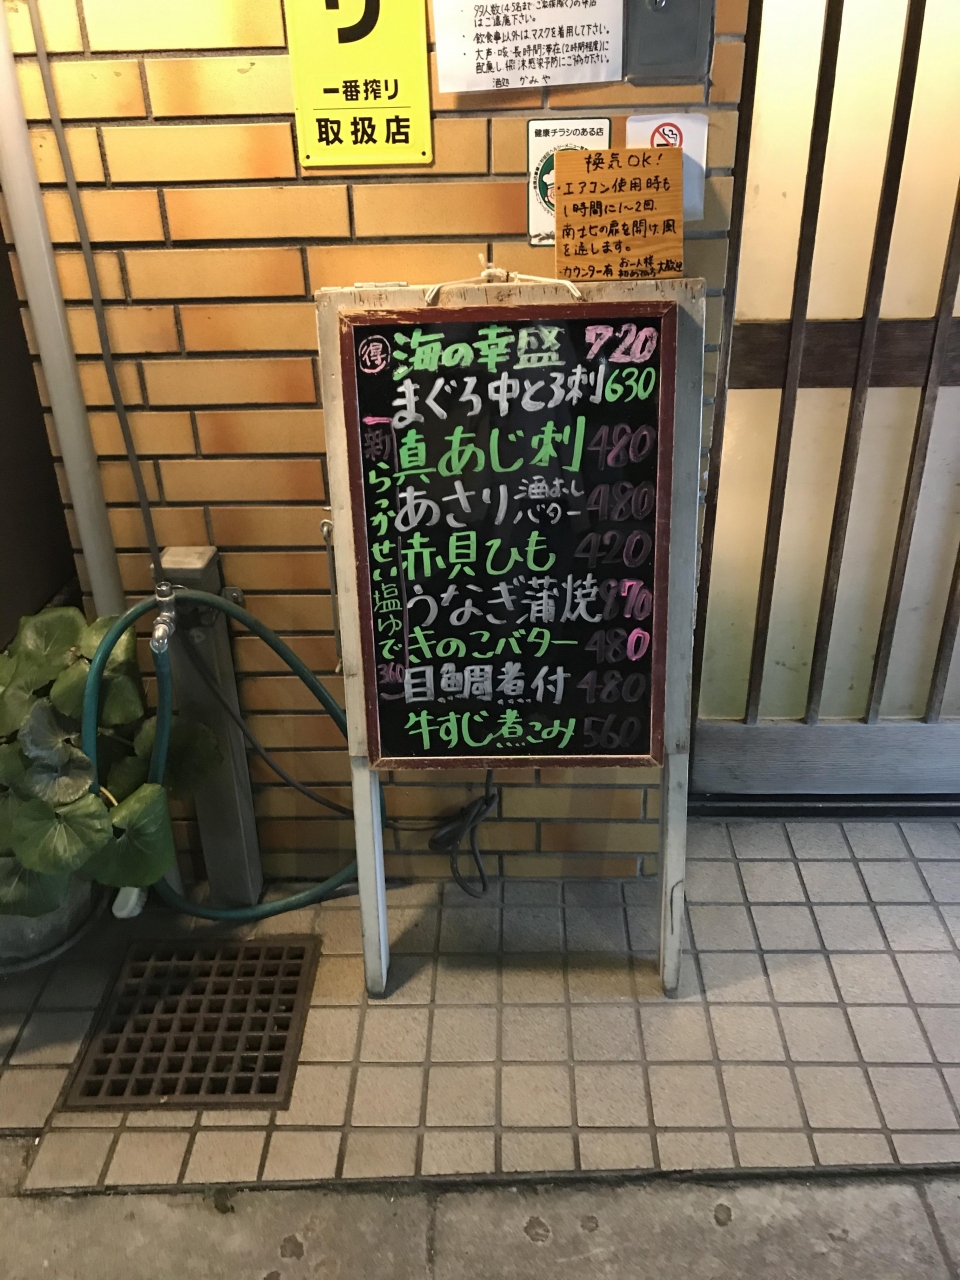 り
一番搾り
取扱店
はご遠慮下さい。
・飲食事以外はマスクを着用して下さい。
・大声・咳・長時間滞在(2時間程度)に
酒処 かみや
健康チラシのある店
換気OK!
・エアコン使用時も
1時間に1〜2回、
南北の扉を開け、風
を通します。
・カウンター有 お一人様 初めての方 大歓迎
得 海の幸盛 720
まぐろ中とろ刺 630
真あじ刺 480
あさり 酒むし バター 480
赤貝ひも 420
うなぎ蒲焼 870
きのこバター 480
目鯛煮付 480
牛すじ煮こみ 560
新らっかせい塩ゆで 360